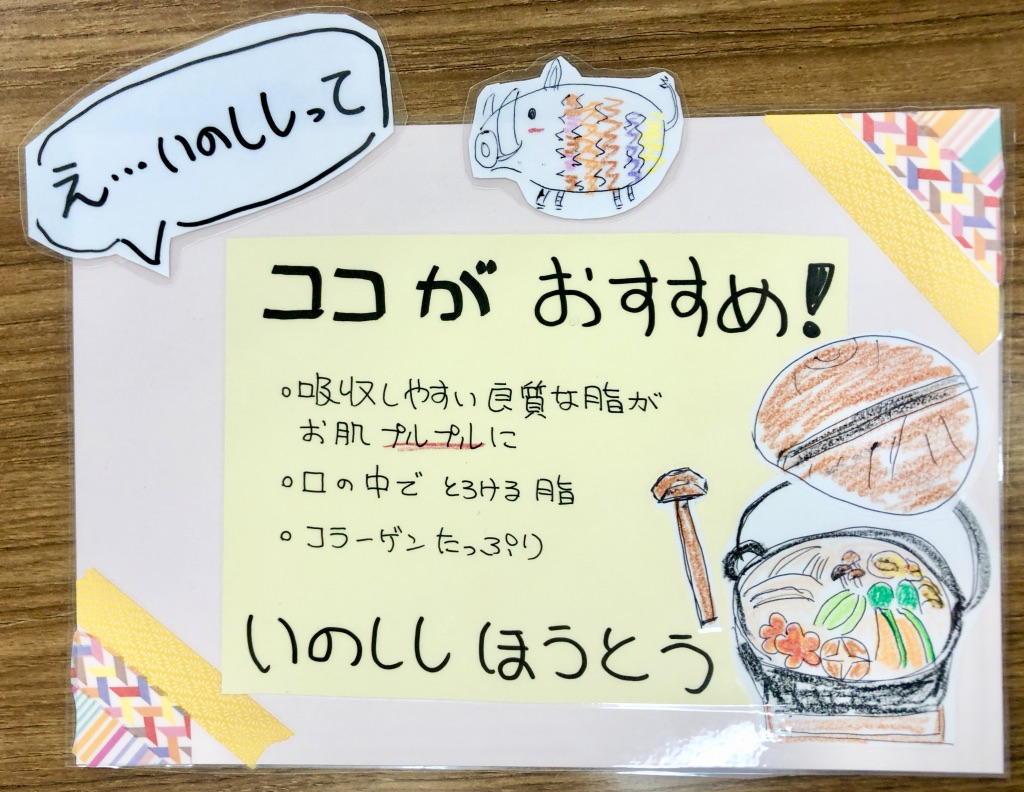 え…いのししって
ココがおすすめ!
○吸収しやすい良質な脂が
お肌プルプルに
○口の中でとろける脂
○コラーゲンたっぷり
いのししほうとう